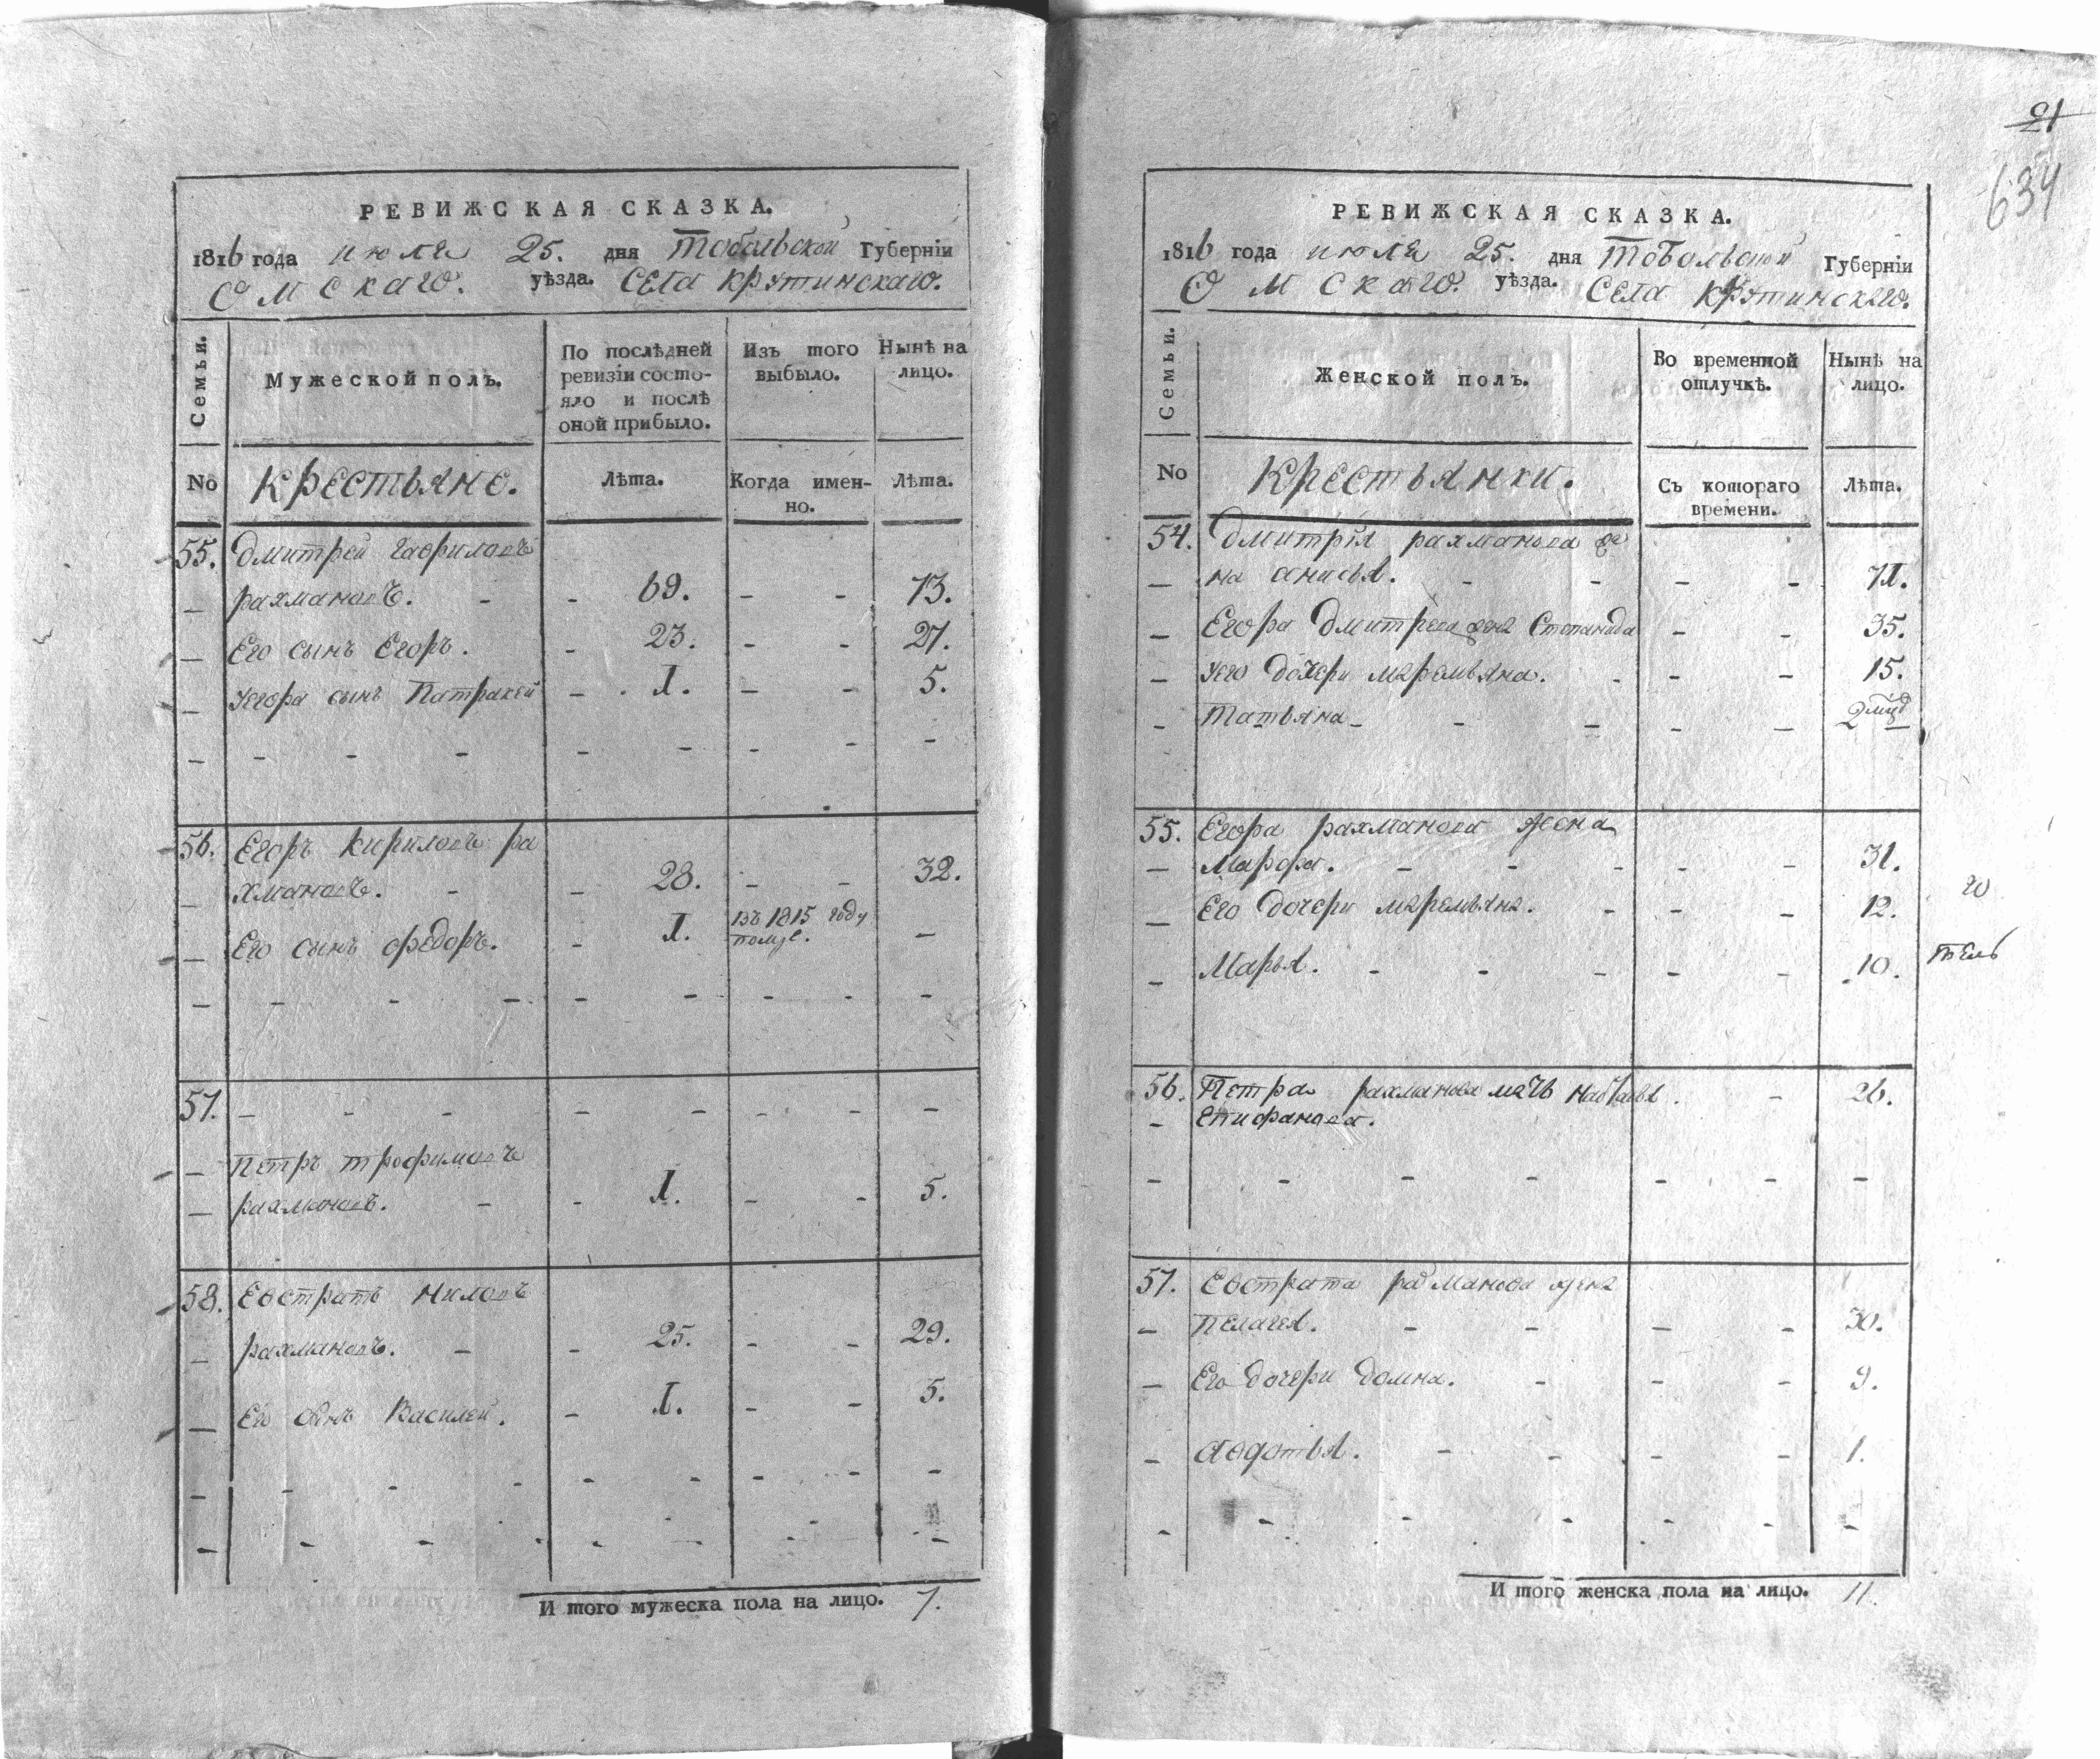 РЕВИЖСКАЯ СКАЗКА.
1816 года июля 25. дня Тобольской Губерніи
Омскаго. уѣзда. села Крутинскаго.
Семьи.
Мужеской полъ.
По послѣдней ревизіи состояло и послѣ оной прибыло.
Изъ того выбыло.
Нынѣ на лицо.
No Крестьяне. Лѣта. Когда именно. Лѣта.
55. Дмитрей Гавриловъ
— рахмановъ. - - 69. - - 73.
— Его сынъ Егоръ. - 23. - - 27.
— Уегора сынъ Патракей - 1. - - 5.
56. Егоръ Кириловъ ра
— хмановъ. - - 28. - - 32.
— Его сынъ Федоръ. - 1. въ 1815 году —
57. - - - - - - - -
— Петръ трофимовъ
— рахмановъ. - - 1. - - 5.
58. Евстратъ Ниловъ
— рахмановъ. - - 25. - - 29.
— Его сынъ Василей. - 1. - - 5.
И того мужеска пола на лицо. 7.
21
634
РЕВИЖСКАЯ СКАЗКА.
1816 года июля 25. дня Тобольской Губерніи
Омскаго. уѣзда. Села Крутинскаго.
Семьи.
Женской полъ.
Во временной отлучкѣ.
Нынѣ на лицо.
No Крестьянки. Съ котораго времени. Лѣта.
54. Дмитрія рахманова же
— на анисья. - - - - 71.
— Егора Дмитрева жена Степанида - - 35.
— Уего дочери маремьяна. - - - 15.
- Татьяна - - - - -
55. Егора рахманова жена
— Марфа. - - - - - 31.
— Его дочери маремьяна. - - - 12.
го
- Марья. - - - - - 10.
тель
56. Петра рахманова мать - 26.
- Епифанова.
57. Евстрата рахманова жена
— пелагея. - - - - 30.
— Его дочери домна. - - - 9.
- авдотья. - - - - 1.
И того женска пола на лицо. 11.